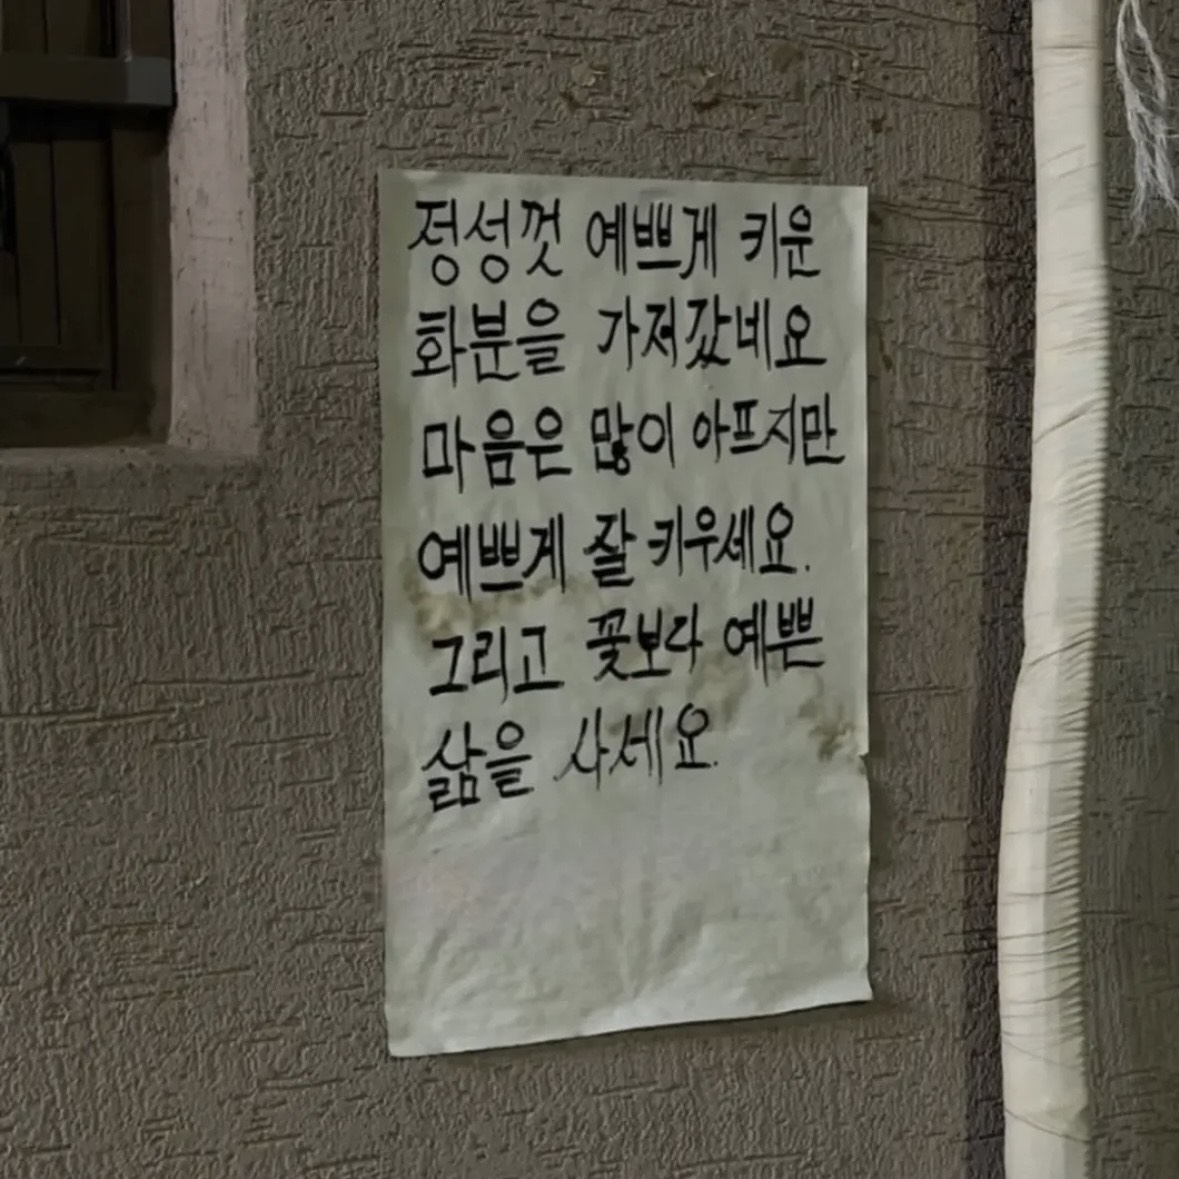 정성껏 예쁘게 키운
화분을 가져갔네요
마음은 많이 아프지만
예쁘게 잘 키우세요.
그리고 꽃보다 예쁜
삶을 사세요.